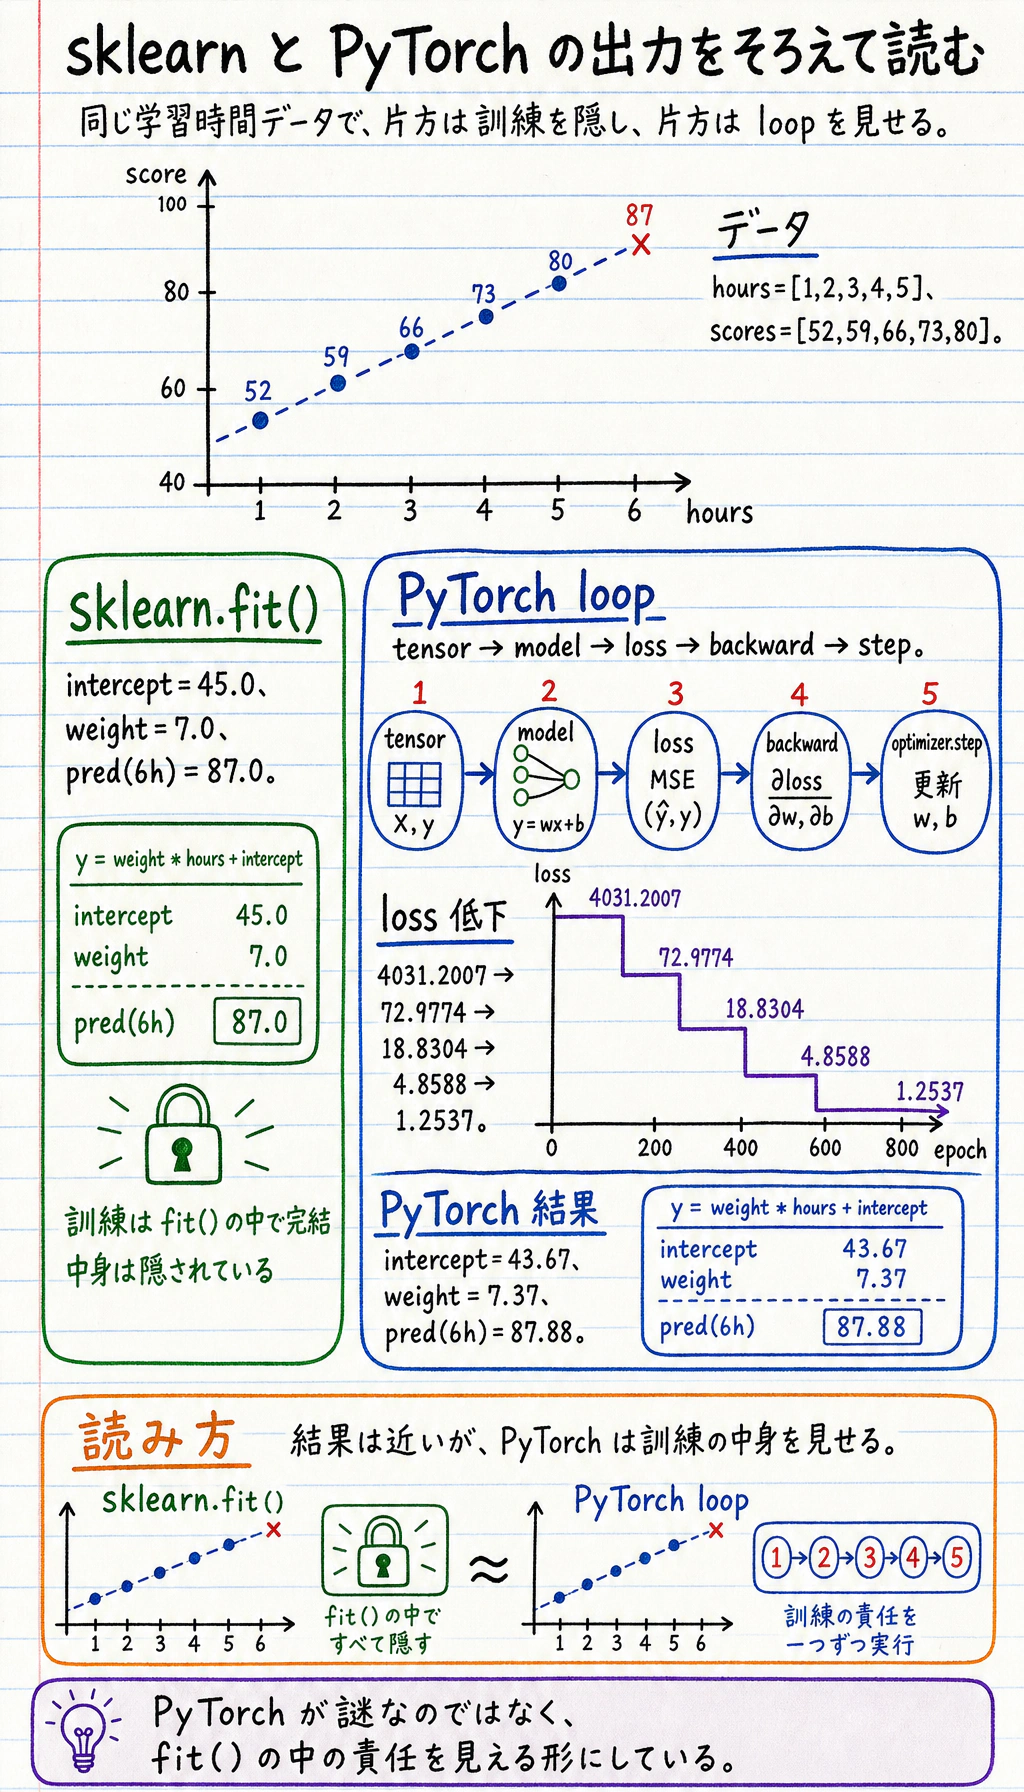 sklearn と PyTorch の出力をそろえて読む
同じ学習時間データで、片方は訓練を隠し、片方は loop を見せる。
score
100
80
60
40
52
59
66
73
80
87
1 2 3 4 5 6
hours
データ
hours=[1,2,3,4,5]、
scores=[52,59,66,73,80]。
sklearn.fit()
intercept=45.0、
weight=7.0、
pred(6h)=87.0。
y = weight * hours + intercept
intercept 45.0
weight 7.0
pred(6h) 87.0
訓練は fit() の中で完結
中身は隠されている
PyTorch loop
tensor → model → loss → backward → step。
1 2 3 4 5
tensor
X, y
model
y=wx+b
loss
MSE
(ŷ, y)
backward
∂loss
∂w, ∂b
optimizer.step
更新
w, b
loss 低下
4031.2007 →
72.9774 →
18.8304 →
4.8588 →
1.2537。
loss
4031.2007
72.9774
18.8304
4.8588
1.2537
0 200 400 600 800 epoch
PyTorch 結果
intercept=43.67、
weight = 7.37、
pred(6h)=87.88。
y = weight * hours + intercept
intercept 43.67
weight 7.37
pred(6h) 87.88
読み方
結果は近いが、PyTorch は訓練の中身を見せる。
sklearn.fit()
1 2 3 4 5 6
fit() の中で
すべて隠す
≈
PyTorch loop
1 2 3 4 5 6
1→2→3→4→5
訓練の責任を
一つずつ実行
PyTorch が謎なのではなく、
fit() の中の責任を見える形にしている。